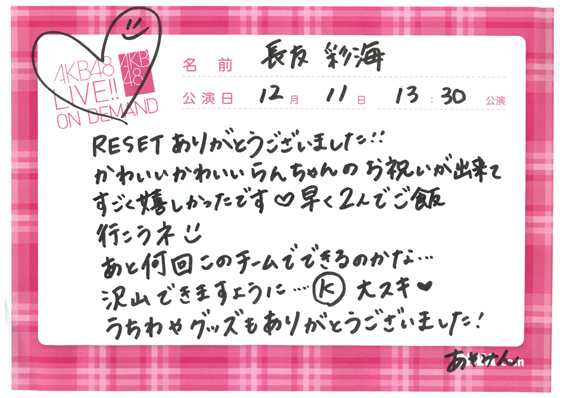 AKB48
LIVE!!
ON DEMAND
AKB
48
名前 長友 彩海
公演日 12月 11日 13:30 公演
RESETありがとうございました!!
かわいいかわいいらんちゃんのお祝いが出来て
すごく嬉しかったです♡早く2人でご飯
行こうネ
あと何回このチームでできるのかな…
沢山できますように…Ⓚ大スキ♥
うちわやグッズもありがとうございました!
あやみん